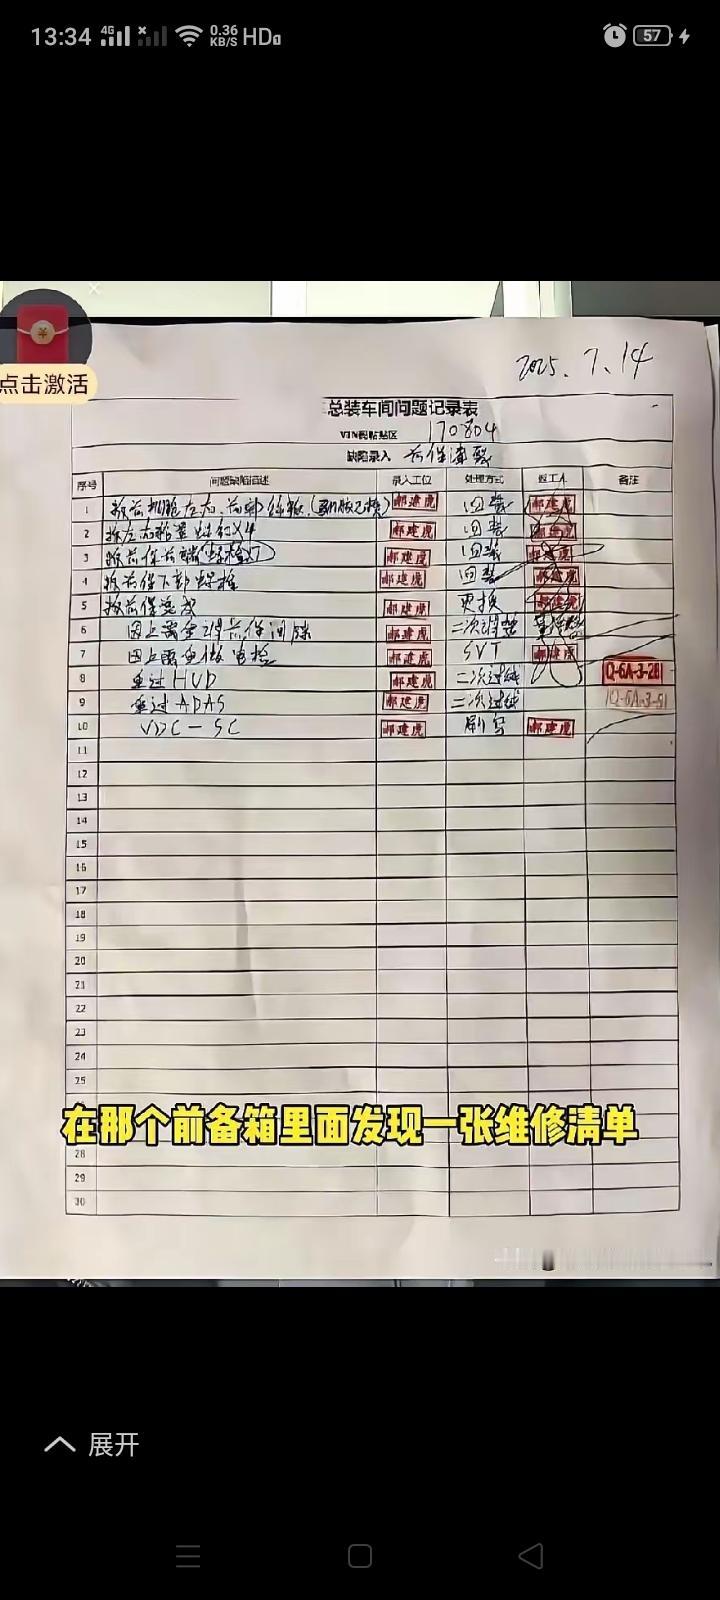 13:34 4G 0.36 KB/S HD 57
点击激活
2025.7.14
总装车间问题记录表
VIN码粘贴区 170804
缺陷录入 前保
序号 问题缺陷描述 录入工位 处理方式 返工人 备注
1 拆前机舱左右、前部 郝建虎 回装 郝建虎
2 拆左右 X4 郝建虎 回装 郝建虎
3 拆前保前端 郝建虎 回装 郝建虎
4 拆前保下部 郝建虎 回装 郝建虎
5 拆前保总成 郝建虎 更换 郝建虎
6 因上需重调前保间隙 郝建虎 二次调整
7 因上需重做电检 郝建虎 SVT 郝建虎
8 重过HUD 郝建虎 二次过线 Q-6A-3-281
9 重过ADAS 郝建虎 二次过线
10 VDC-SC 郝建虎 刷写 郝建虎
11
12
13
14
15
16
17
18
19
20
21
22
23
24
25
在那个前备箱里面发现一张维修清单
28
29
30
展开